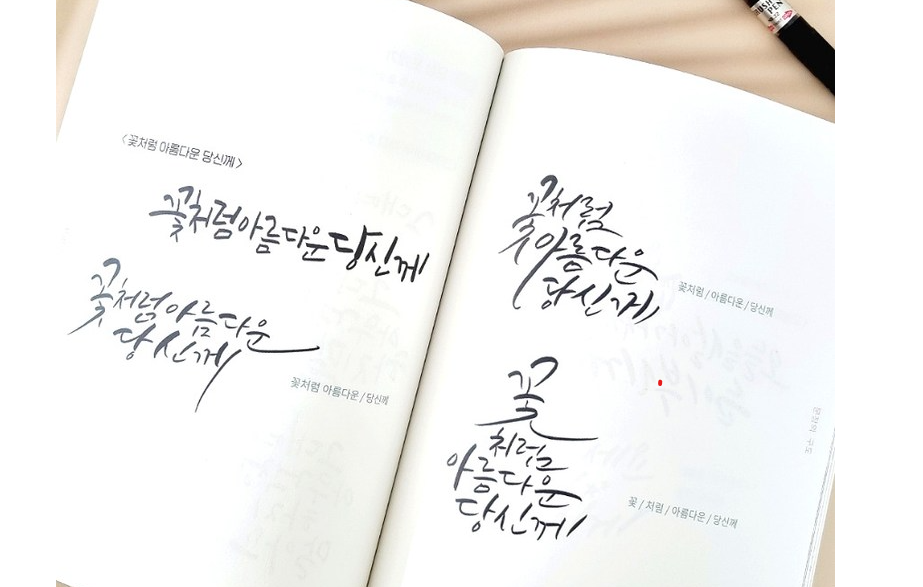 <꽃처럼 아름다운 당신께>
꽃처럼아름다운당신께
꽃처럼아름다운
당신께
꽃처럼 아름다운/당신께
꽃처럼
아름다운
당신께
꽃처럼/아름다운/당신께
꽃
처럼
아름다운
당신께
꽃/처럼/아름다운/당신께
문장의 구도
PEN